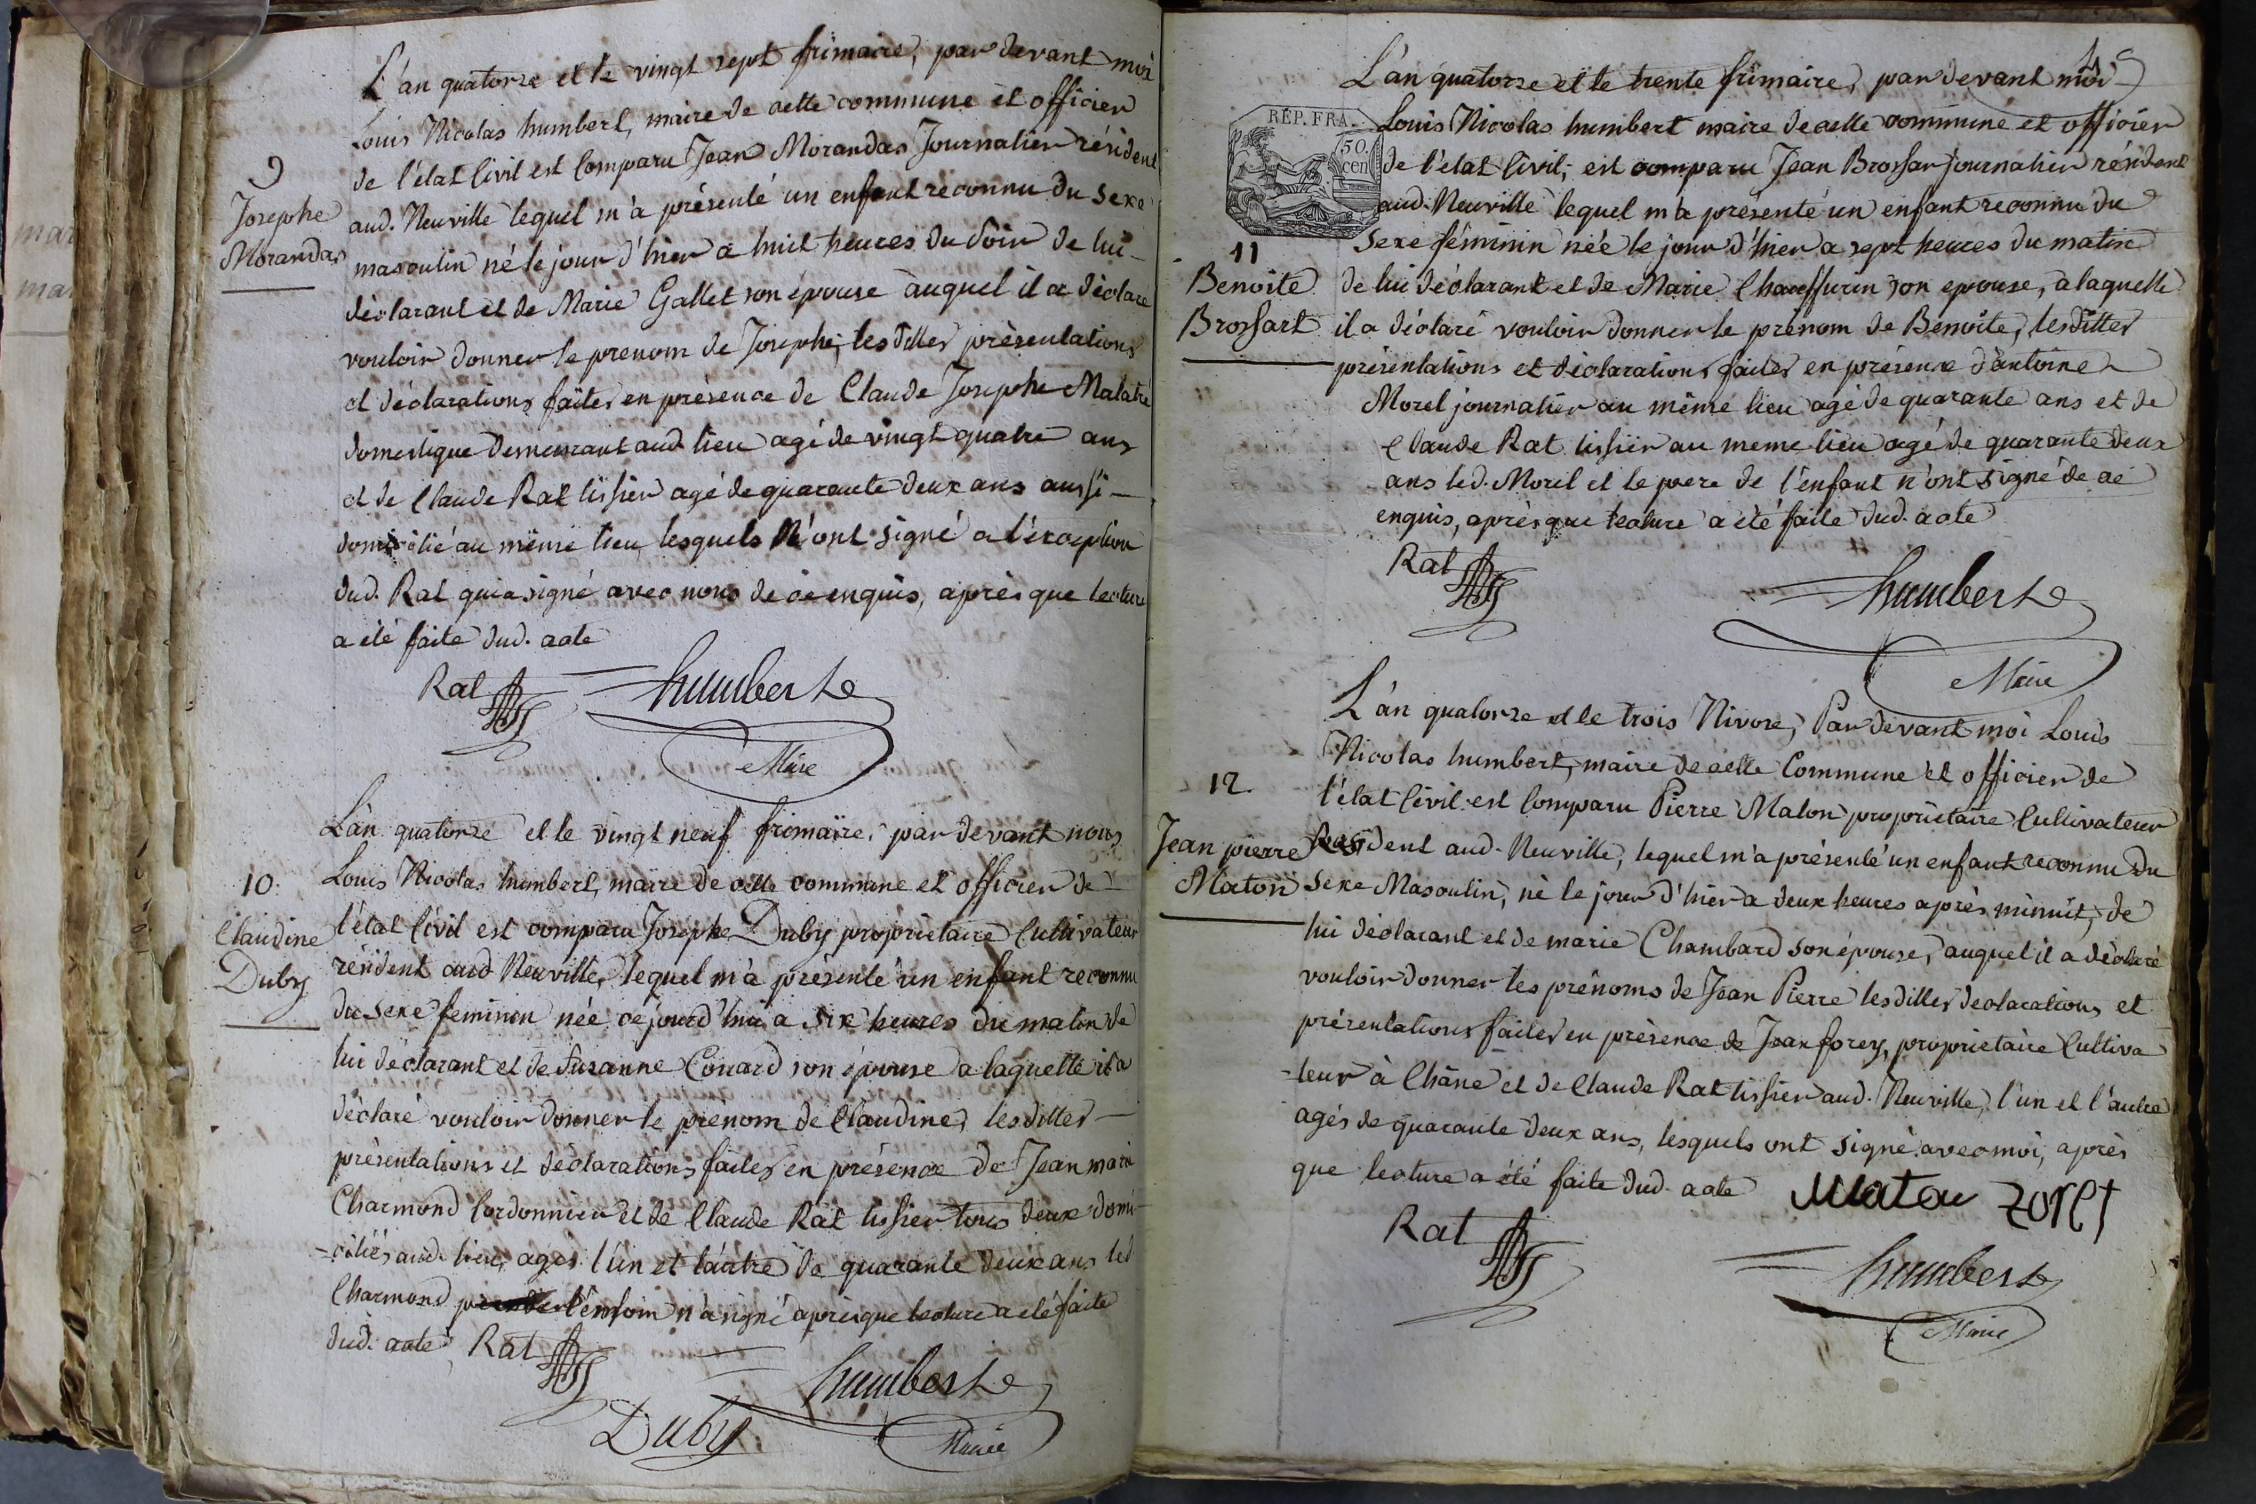 L'an quatorze et le vingt sept frimaire, par devant moi
Louis Nicolas humbert, maire de cette commune et officier
de l'état Civil est Comparu Jean Morandas Journalier résident
9
Josephe
Morandas
aud. Neuville lequel m'a présenté un enfant reconnu du sexe
masculin né le jour d'hier a huit heures du soir de lui
déclarant et de Marie Gallet son épouse auquel il a déclaré
vouloir donner le prenom de Josephe, lesdittes présentations
et déclarations faites en présence de Claude Josephe Malatré
domestique demeurant aud. lieu agé de vingt quatre ans
et de Claude Rat tissier agé de quarante deux ans aussi
domicilié au même lieu, lesquels n'ont signé a l'exception
dud. Rat qui a signé avec nous de ce enquis, après que lecture
a été faite dud. acte
Rat humbert
Maire
L'an quatorze et le vingt neuf frimaire, par devant nous
10.
Claudine
Duby
Louis Nicolas humbert, maire de cette commune et officier de
l'état Civil est comparu Josephe Duby propriétaire Cultivateur
résident aud Neuville, lequel m'a présenté un enfant reconnu
du sexe feminin née ce jourd'hui a six heures du matin de
lui déclarant et de Suzanne Couard son épouse a laquelle il a
déclaré vouloir donner le prénom de Claudine, lesdittes
présentations et déclarations faites en présence de Jean marie
Charmond Cordonnier et de Claude Rat tissier tous deux domi-
-ciliés aud. lieu, agés l'un et l'autre de quarante deux ans led
Charmond l'émoin n'a signé apres que lecture a été faite
dud. acte Rat
humbert
Duby Maire
L'an quatorze et le trente frimaire, par devant moi
RÉP. FRA.
50.
cen
Louis Nicolas humbert maire de cette commune et officier
de l'état Civil, est comparu Jean Brossar journalier résident
aud. Neuville lequel m'a présenté un enfant reconnu du
sexe féminin née le jour d'hier a sept heures du matin
11
Benoite
Brossart
de lui déclarant et de Marie Chaffurin son epouse, a laquelle
il a déclaré vouloir donner le prénom de Benoite, lesdittes
présentations et déclarations faites en présence d'antoine
Morel journalier au même lieu agé de quarante ans et de
Claude Rat tissier au meme lieu agé de quarante deux
ans led. Morel et le pere de l'enfant n'ont signé de ce
enquis, après que lecture a été faite dud. acte
Rat humbert
Maire
L'an quatorze et le trois Nivose, Par devant moi Louis
Nicolas humbert, maire de cette Commune et officier de
12.
Jean pierre
Maton
l'état Civil est Comparu Pierre Maton propriétaire Cultivateur
Résident aud. Neuville, lequel m'a présenté un enfant reconnu du
sexe Masculin, né le jour d'hier a deux heures après minuit, de
lui déclarant et de marie Chambard son épouse, auquel il a déclaré
vouloir donner les prénoms de Jean Pierre lesdittes déclarations et
présentations faites en présence de Jean forey, propriétaire Cultiva
-teur à Châne et de Claude Rat tissier aud. Neuville, l'un et l'autre
agés de quarante deux ans, lesquels ont signé avec moi, après
que lecture a été faite dud. acte
Rat
humbert
Maire